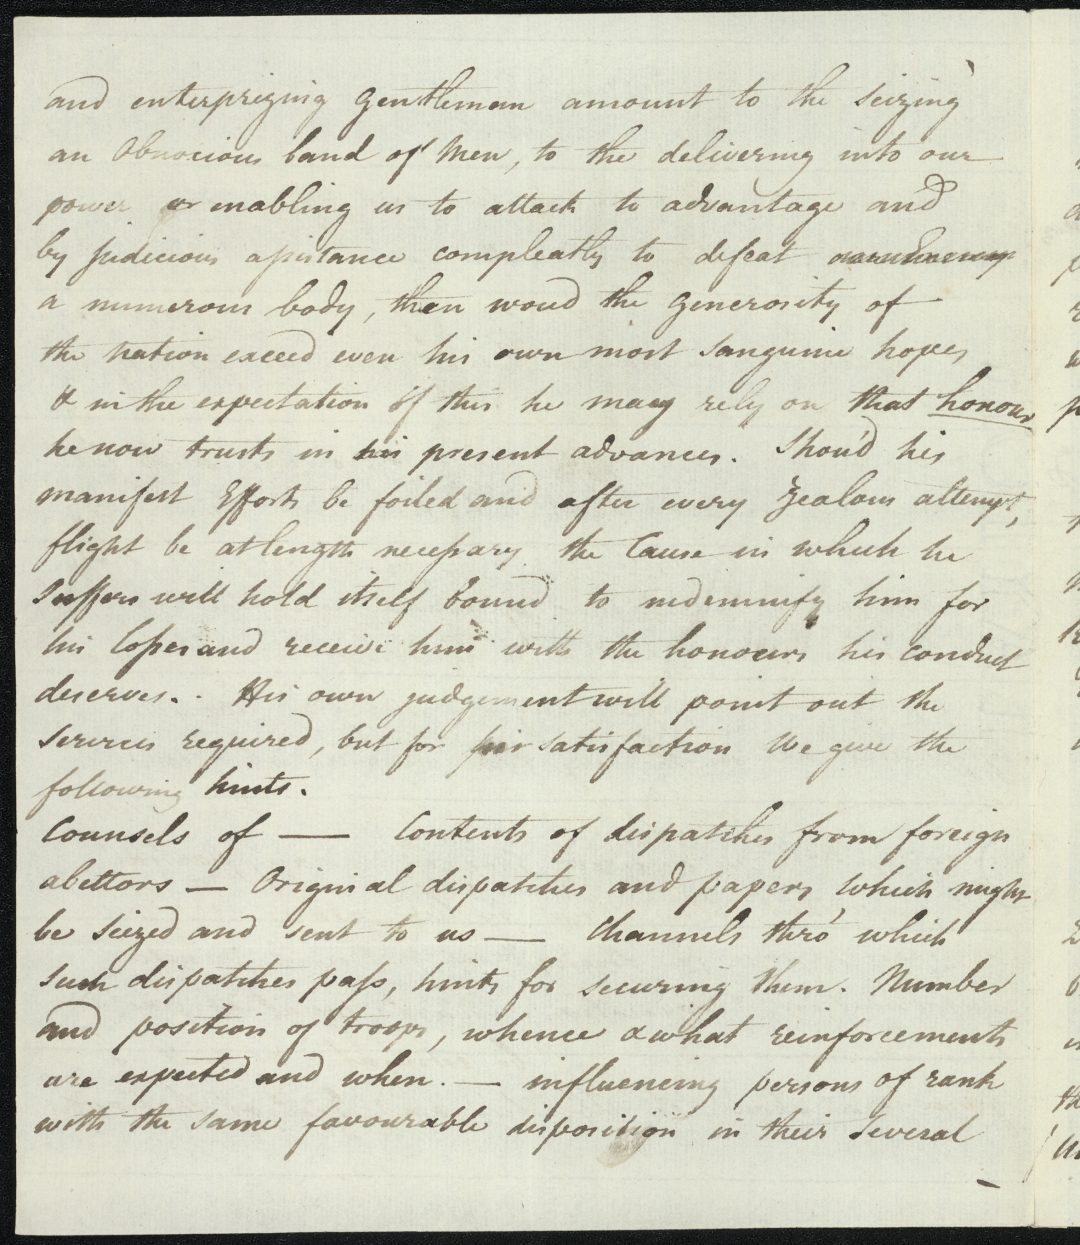 and enterprizing Gentleman amount to the seizing
an Obnocious band of Men, to the delivering into our
power or enabling us to attack to advantage and
by judicious assistance compleatly to defeat
a numerous body, then woud the Generosity of
the Nation exceed even his own most sanguine hopes
& in the expectation of this he may rely on that honour
he now trusts in his present advances. Shou'd his
manifest Efforts be foiled and after every Zealous attempt,
flight be at length necessary the Cause in which he
suffers will hold itself bound to indemnify him for
his losses and receive him with the honours his conduct
deserves. His own judgement will point out the
services required, but for his satisfaction We give the
following hints.
Counsels of — Contents of dispatches from foreign
abettors — Original dispatches and papers which might
be seized and sent to us — Channels thro' which
such dispatches pass, hints for securing them. Number
and position of troops, whence & what reinforcements
are expected and when. — influencing persons of rank
with the same favourable disposition in their several